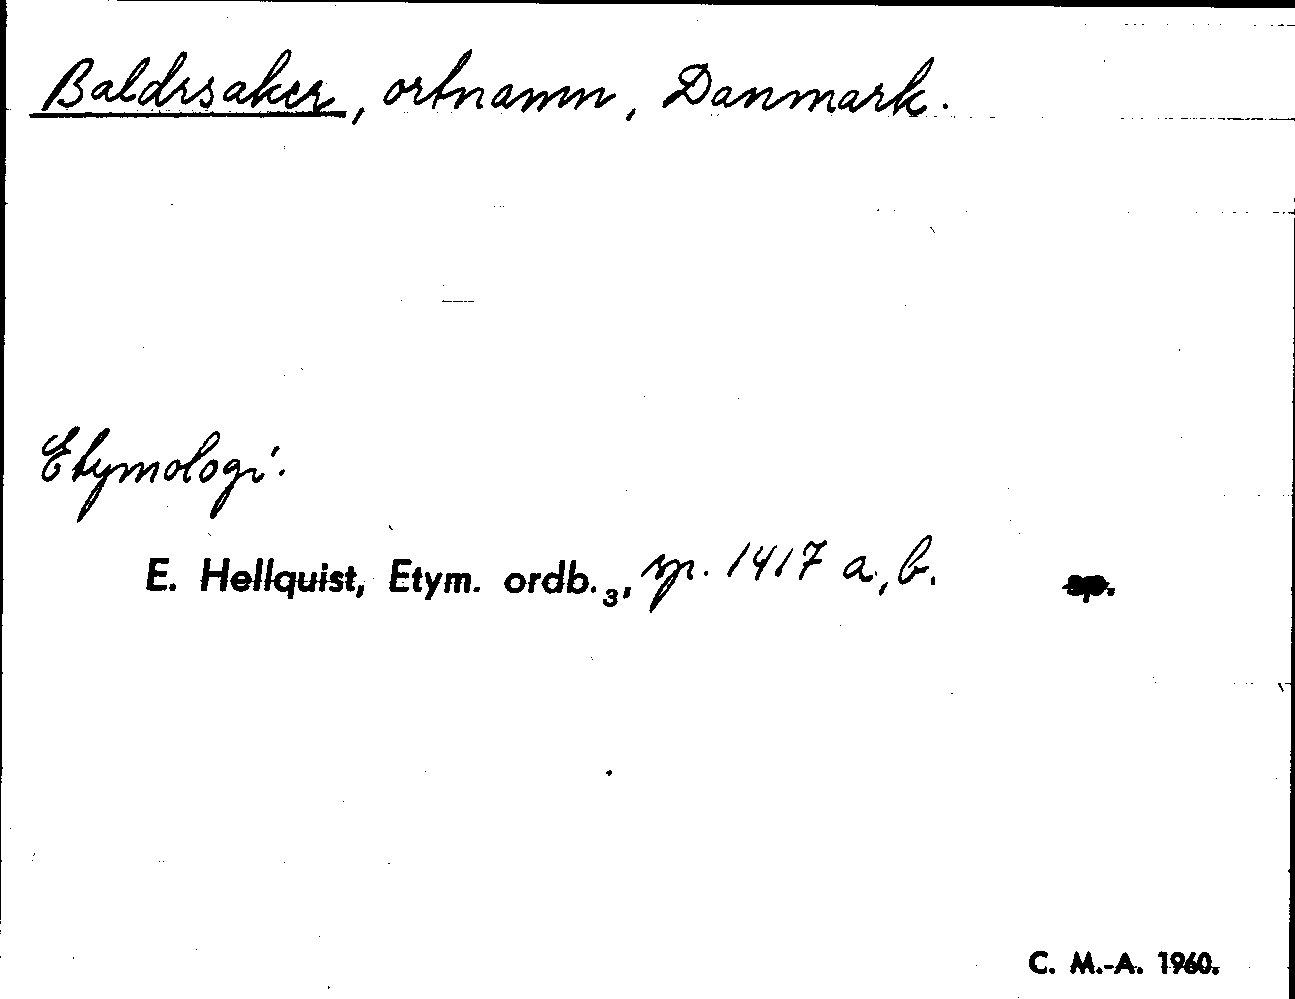 Baldrsaker, ortnamn, Danmark.
Etymologi.
E. Hellquist, Etym. ordb.₃, sp. 1417 a, b. sp.
C. M.-A. 1960.